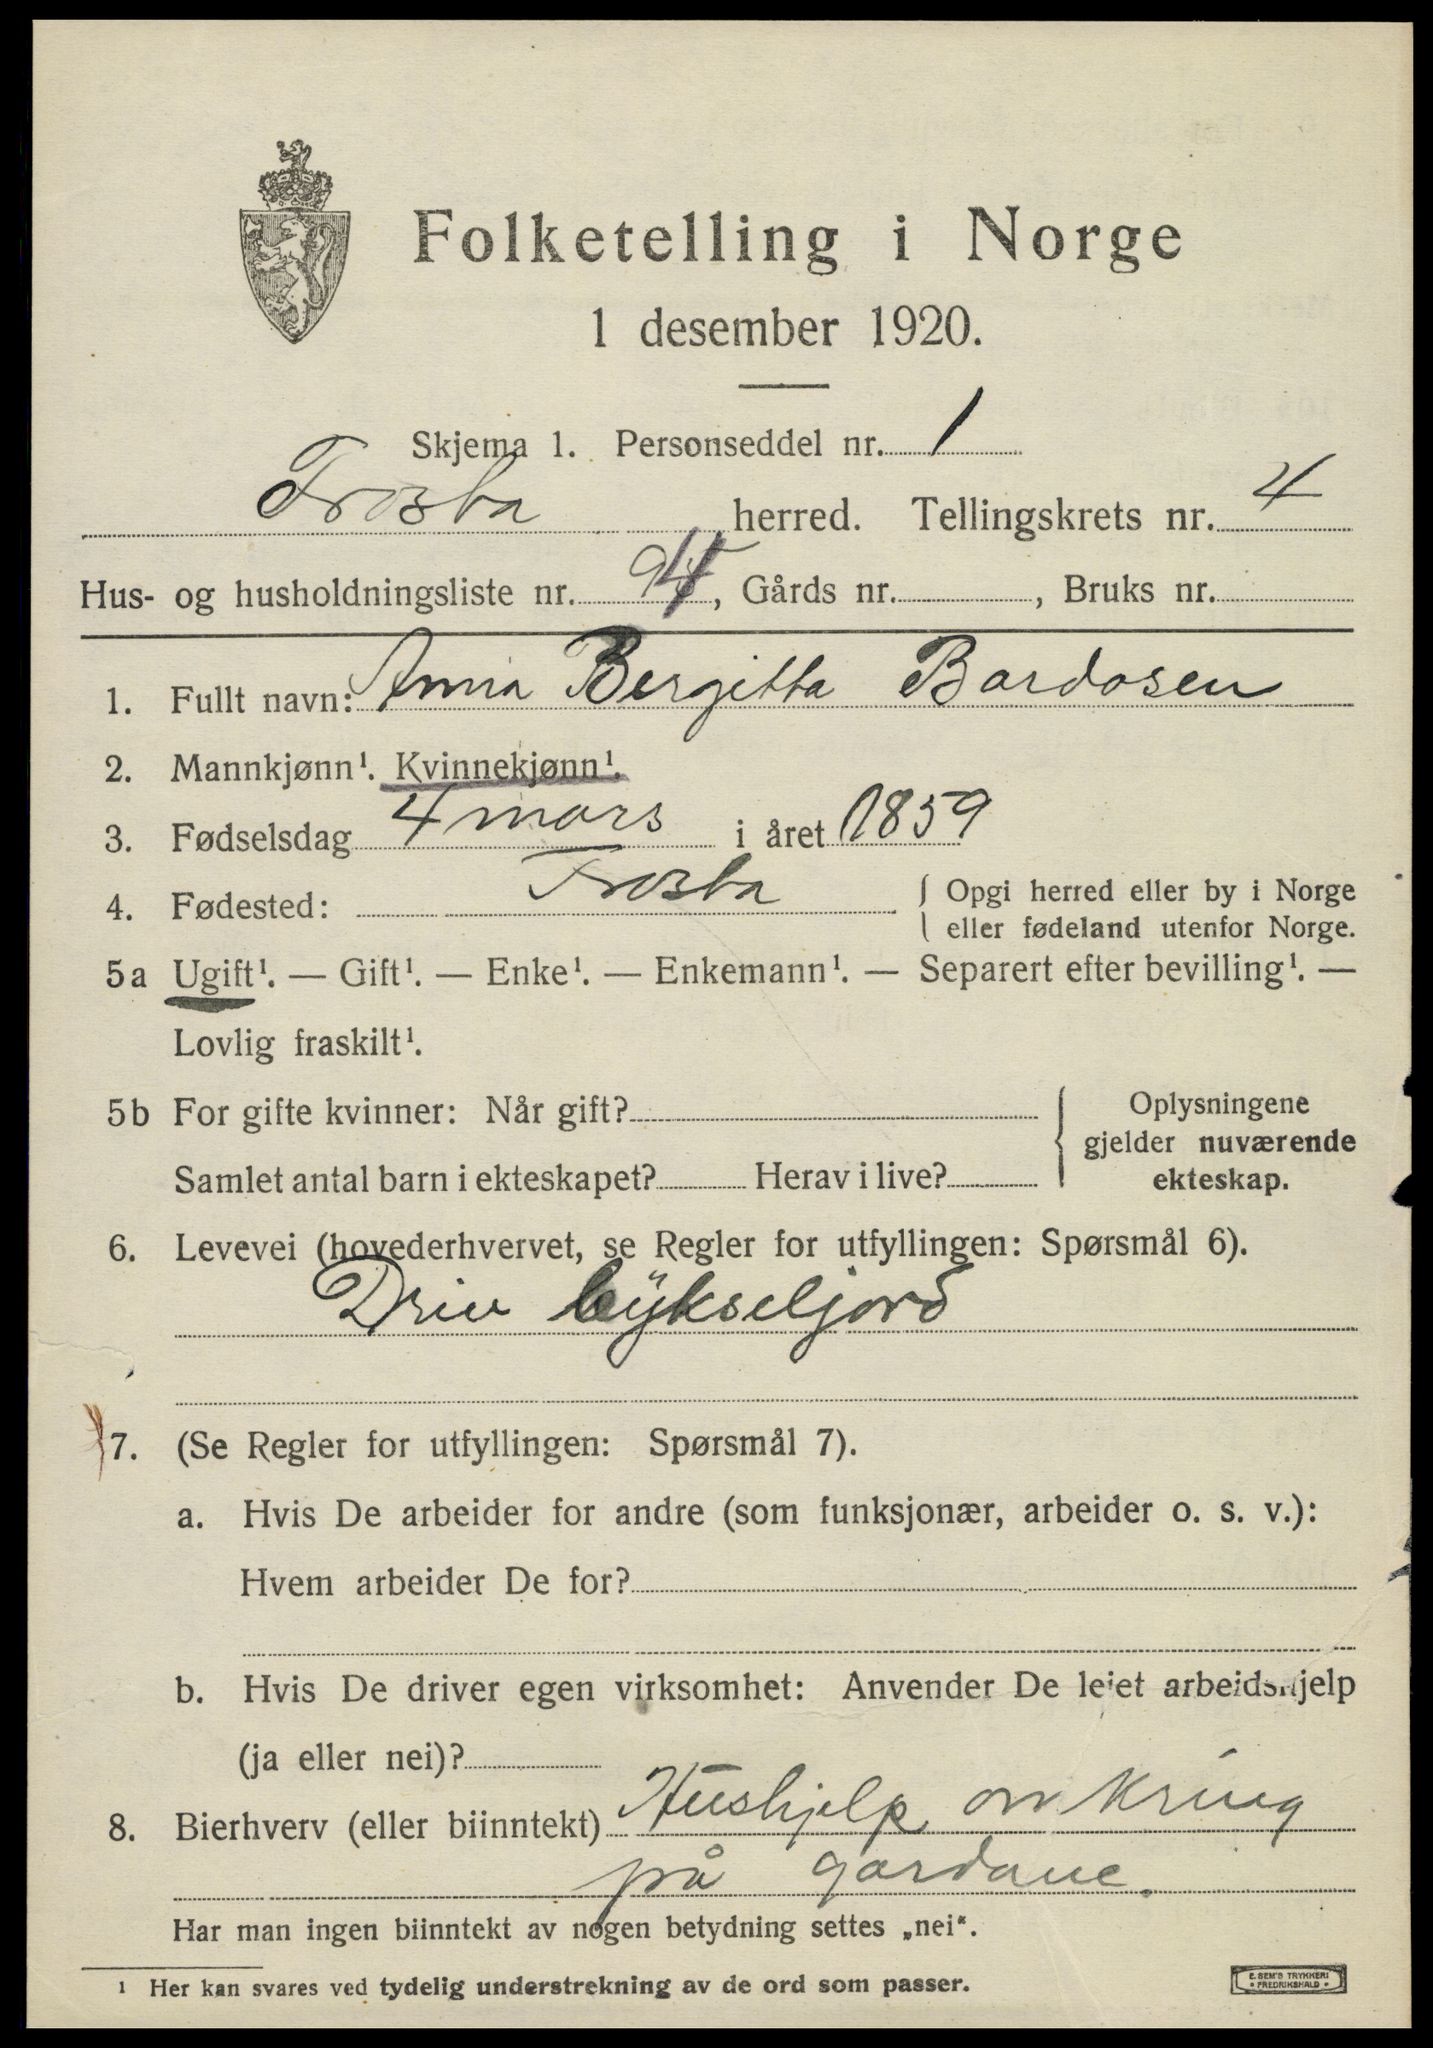 Folketelling i Norge
1 desember 1920.
Skjema 1. Personseddel nr. 1
Frosta herred. Tellingskrets nr. 4
Hus- og husholdningsliste nr. 94, Gårds nr. , Bruks nr.
1. Fullt navn: Anna Bergitta Bardosen
2. Mannkjønn¹. Kvinnekjønn¹.
3. Fødselsdag 4 mars i året 1859
4. Fødested: Frosta { Opgi herred eller by i Norge
eller fødeland utenfor Norge.
5a Ugift¹. — Gift¹. — Enke¹. — Enkemann¹. — Separert efter bevilling¹. —
Lovlig fraskilt¹.
5b For gifte kvinner: Når gift? { Oplysningene
gjelder nuværende
Samlet antal barn i ekteskapet? Herav i live? ekteskap.
6. Levevei (hovederhvervet, se Regler for utfyllingen: Spørsmål 6).
Driv bykseljord
7. (Se Regler for utfyllingen: Spørsmål 7).
a. Hvis De arbeider for andre (som funksjonær, arbeider o. s. v.):
Hvem arbeider De for?
b. Hvis De driver egen virksomhet: Anvender De leiet arbeidshjelp
(ja eller nei)?
8. Bierhverv (eller biinntekt) Hushjelp omkring
på gardane.
Har man ingen biinntekt av nogen betydning settes „nei“.
¹ Her kan svares ved tydelig understrekning av de ord som passer.
E. SEM'S TRYKKERI
FREDRIKSHALD